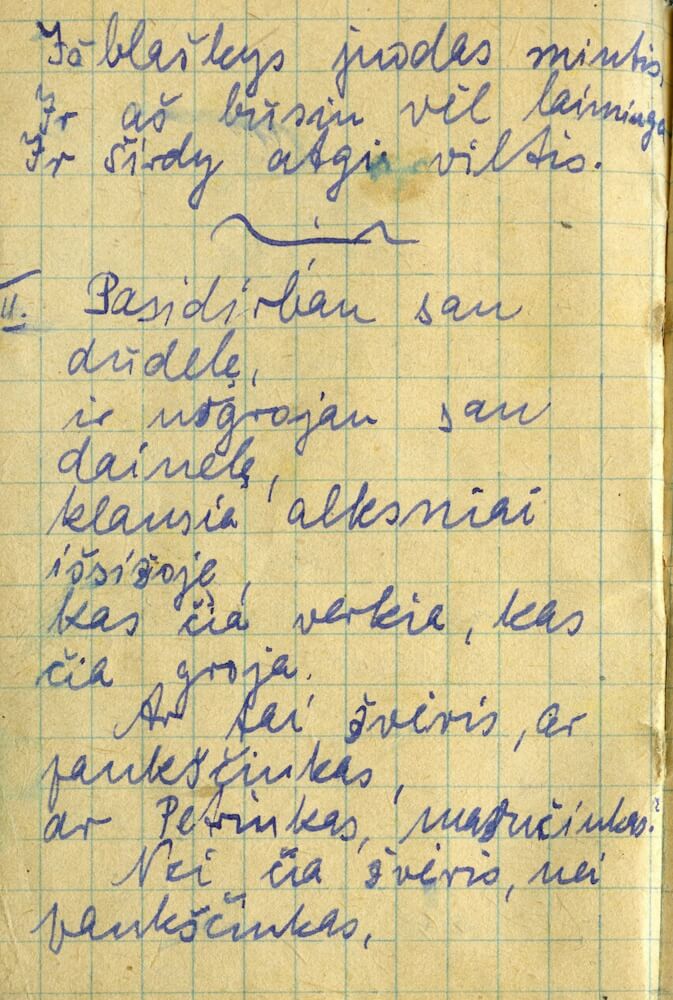 Išblaškys juodas mintis,
Ir aš būsiu vėl laiminga
Ir širdy atgis viltis.
II. Pasidirbau sau
dūdelę,
ir nugrojau sau
dainelę,
klausia alksniai
išsižoję,
kas čia verkia, kas
čia groja.
Ar tai žvėris, ar
paukščiukas,
ar Petriukas, mažučiukas?
Nei čia žvėris, nei
paukščiukas,